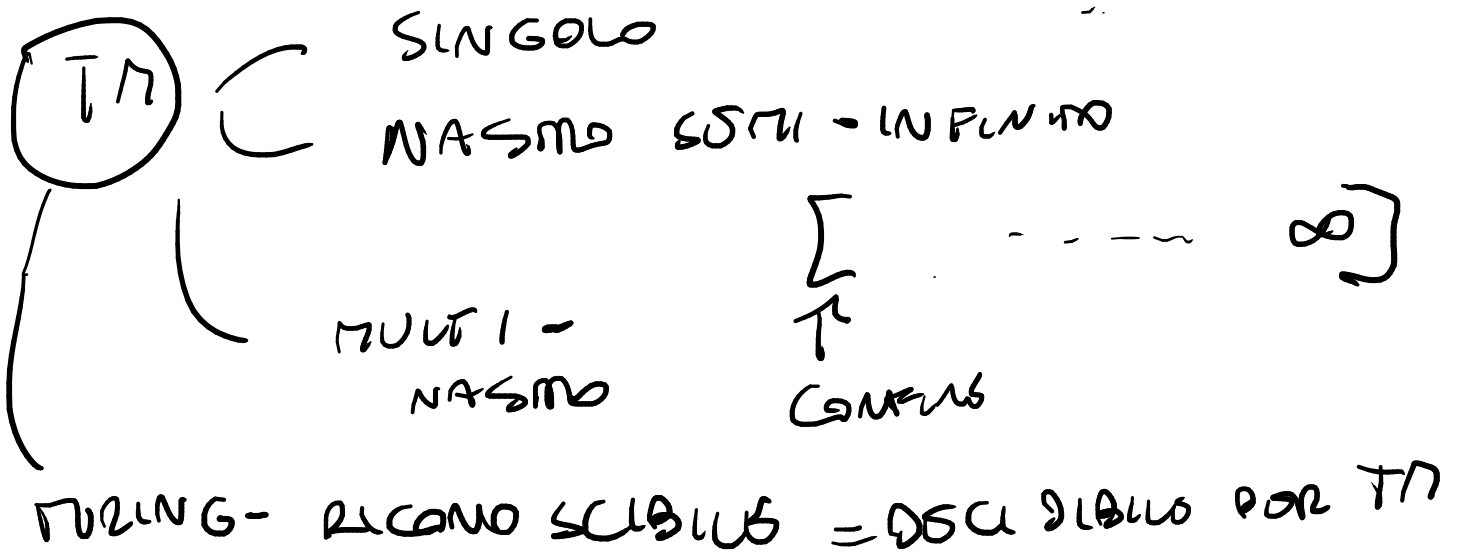 TM SINGOLO
NASTRO SEMI-INFINITO
[ ----- ∞]
MULTI-
NASTRO
↑
CONFINE
TURING-RICONOSCIBILE = DECIDIBILE PER TM